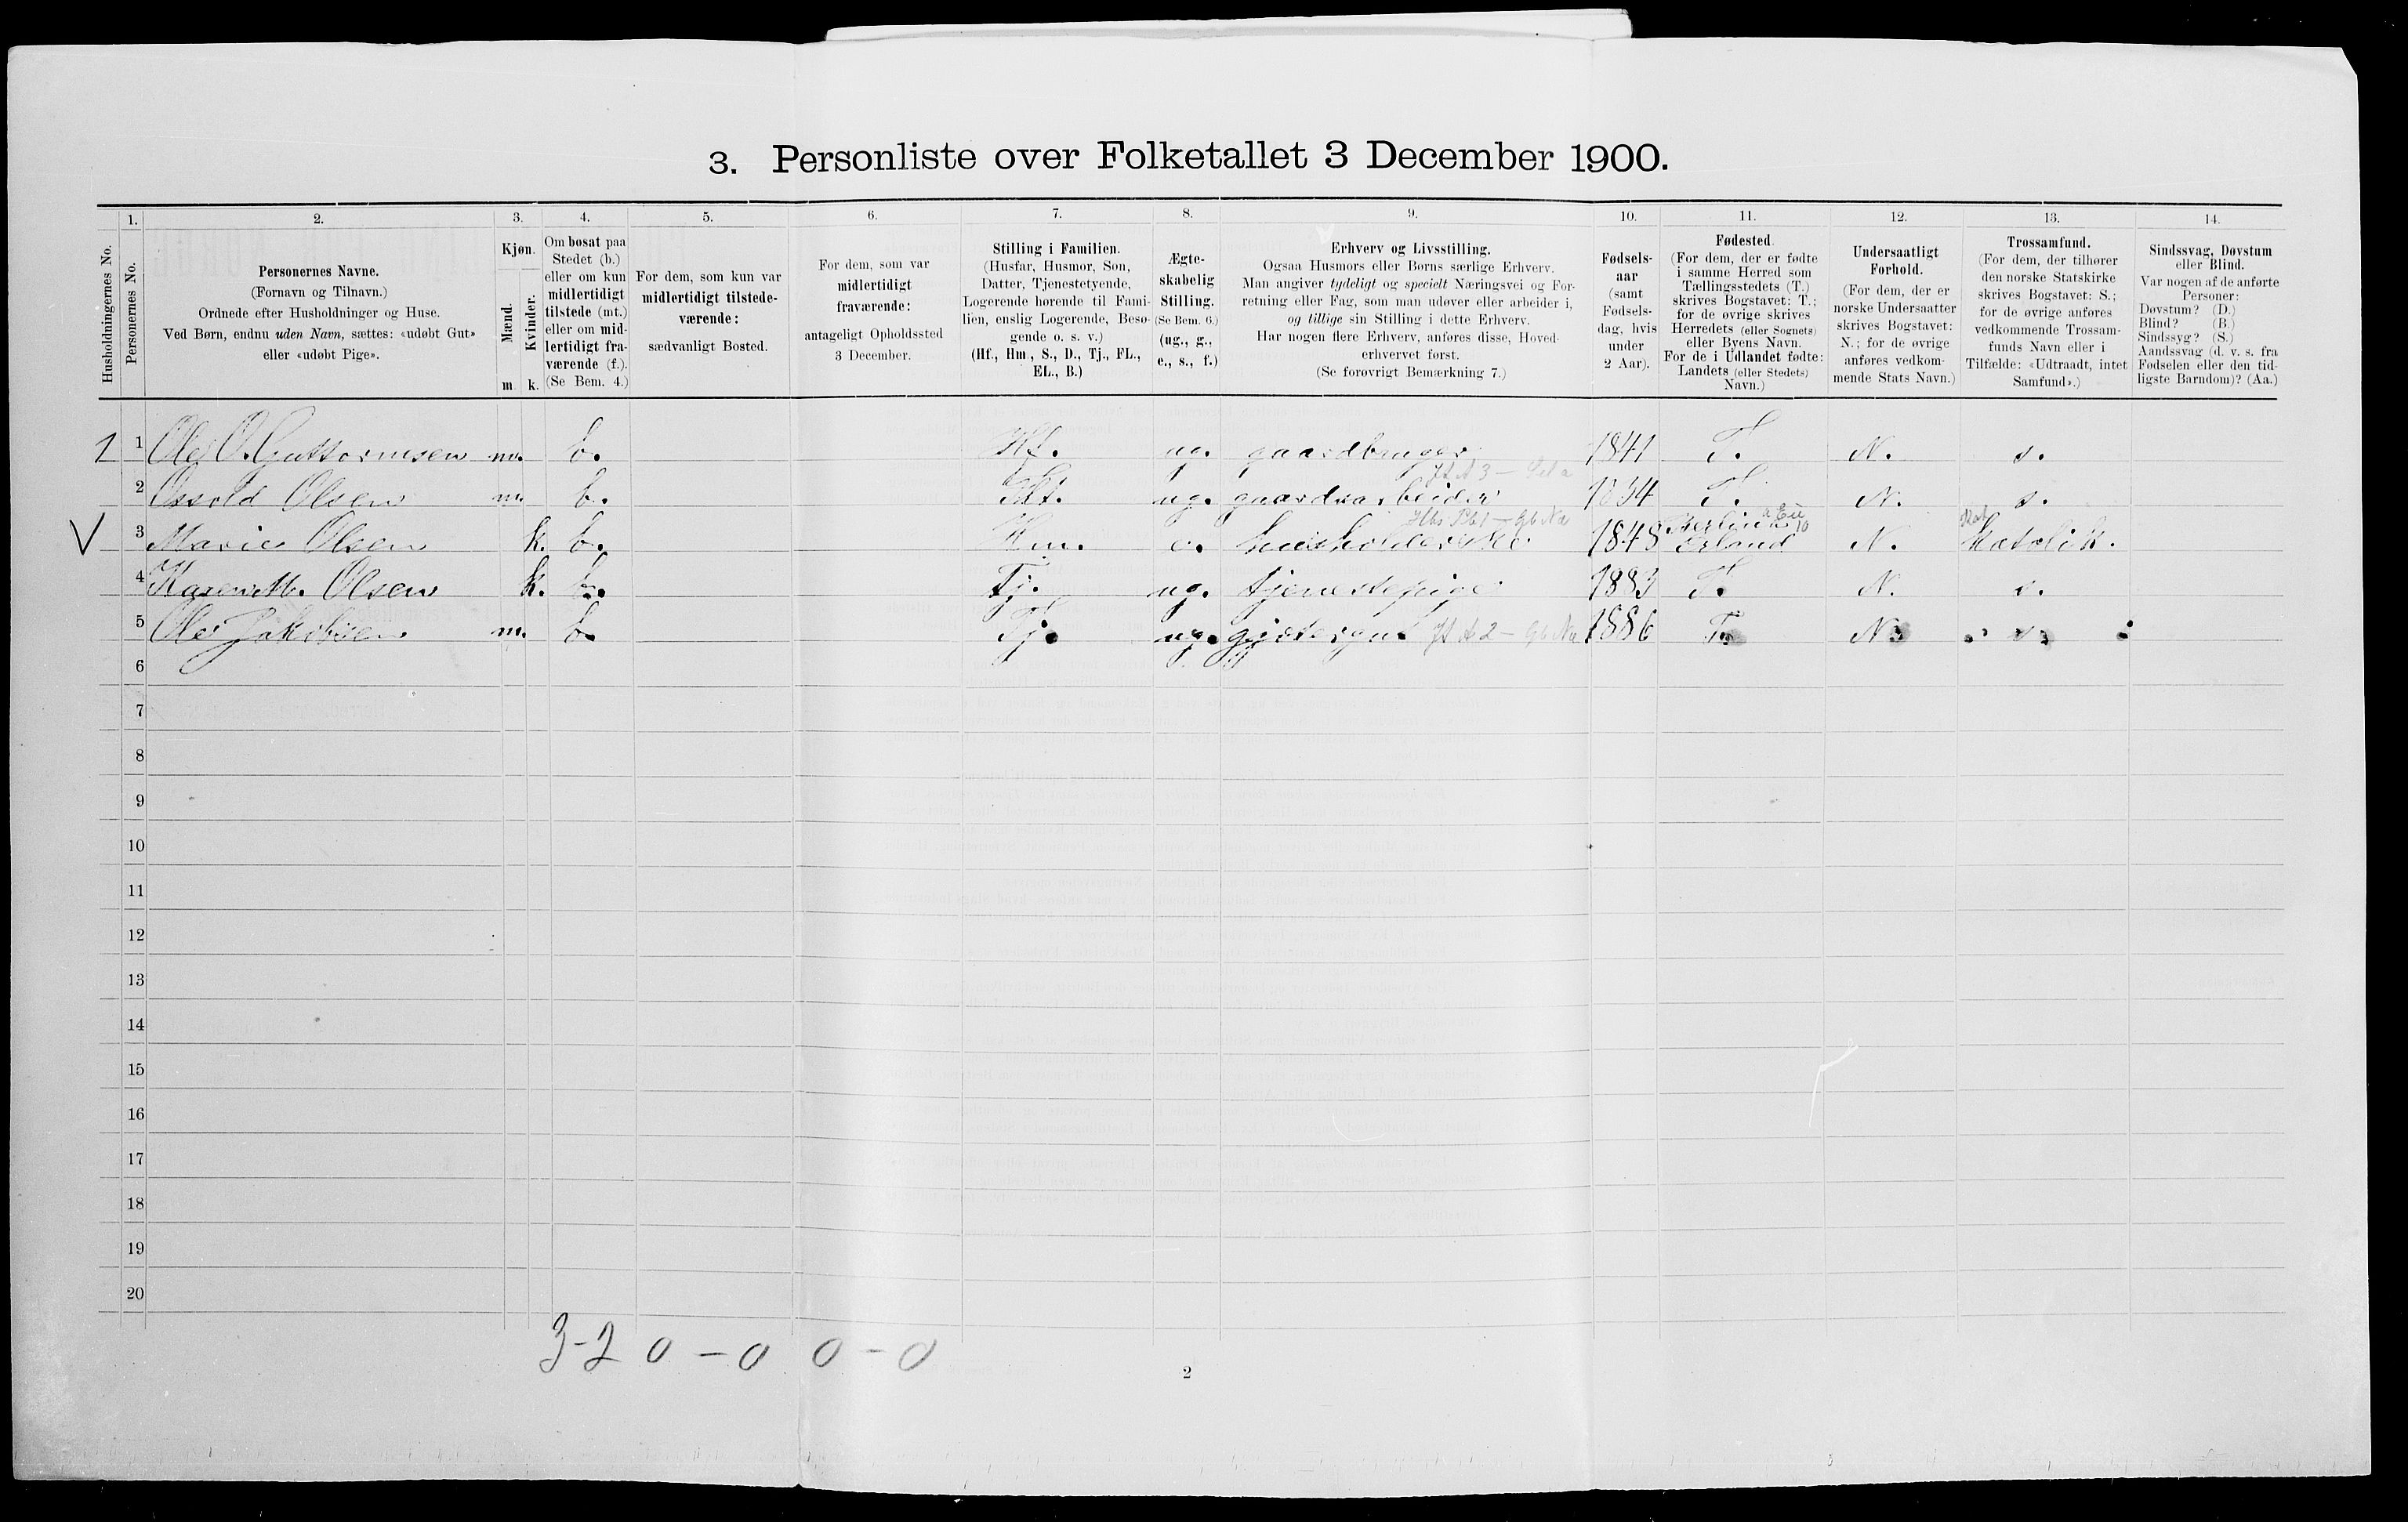 3. Personliste over Folketallet 3 December 1900.
1. 2. 3. 4. 5. 6. 7. 8. 9. 10. 11. 12. 13. 14.
Husholdningernes No.
Personernes No.
Personernes Navne.
(Fornavn og Tilnavn.)
Ordnede efter Husholdninger og Huse.
Ved Børn, endnu uden Navn, sættes: «udøbt Gut»
eller «udøbt Pige».
Kjøn.
Mænd.
Kvinder.
m. k.
Om bosat paa
Stedet (b.)
eller om kun
midlertidigt
tilstede (mt.)
eller om mid-
lertidigt fra-
værende (f.).
(Se Bem. 4.)
For dem, som kun var
midlertidigt tilstede-
værende:
sædvanligt Bosted.
For dem, som var
midlertidigt
fraværende:
antageligt Opholdssted
3 December.
Stilling i Familien.
(Husfar, Husmor, Søn,
Datter, Tjenestetyende,
Logerende hørende til Fami-
lien, enslig Logerende, Besø-
gende o. s. v.)
(Hf., Hm., S., D., Tj., FL.,
EL., B.)
Ægte-
skabelig
Stilling.
(Se Bem. 6.)
(ug., g.,
e., s., f.)
Erhverv og Livsstilling.
Ogsaa Husmors eller Børns særlige Erhverv.
Man angiver tydeligt og specielt Næringsvei og For-
retning eller Fag, som man udøver eller arbeider i,
og tillige sin Stilling i dette Erhverv.
Har nogen flere Erhverv, anføres disse, Hoved-
erhvervet først.
(Se forøvrigt Bemærkning 7.)
Fødsels-
aar
(samt
Fødsels-
dag, hvis
under
2 Aar).
Fødested
(For dem, der er fødte
i samme Herred som
Tællingsstedets (T.)
skrives Bogstavet: T.;
for de øvrige skrives
Herredets (eller Sognets)
eller Byens Navn.
For de i Udlandet fødte:
Landets (eller Stedets)
Navn.)
Undersaatligt
Forhold.
(For dem, der er
norske Undersaatter
skrives Bogstavet:
N.; for de øvrige
anføres vedkom-
mende Stats Navn.)
Trossamfund.
(For dem, der tilhører
den norske Statskirke
skrives Bogstavet: S.;
for de øvrige anføres
vedkommende Trossam-
funds Navn eller i
Tilfælde: «Udtraadt, intet
Samfund».)
Sindssvag, Døvstum
eller Blind.
Var nogen af de anførte
Personer:
Døvstum? (D.)
Blind? (B.)
Sindssyg? (S.)
Aandssvag (d. v. s. fra
Fødselen eller den tid-
ligste Barndom)? (Aa.)
1 1 Ole O. Guttormsen m. b. Hf. ug. gaardbruger 1841 T. N. s.
2 Olsen m. b. ug. gaardsarbeider T. N. s.
V 3 Marie Olsen k. b. Hm. e. husholderske 1848 N. Katolik.
4 Karen M. Olsen k. b. Tj. ug. tjenestepige 1883 T. N. s.
5 Ole Jakobsen m. b. Tj. ug. gjætergut 1886 T. N. s.
6
7
8
9
10
11
12
13
14
15
16
17
18
19
20
3-2 0-0 0-0
2